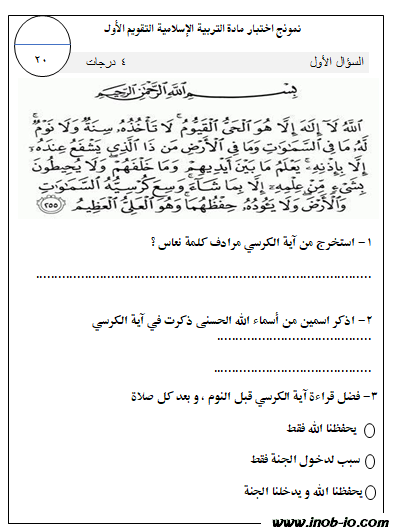 نموذج اختبار مادة التربية الإسلامية التقويم الأول
٢٠
السؤال الأول ٤ درجات
بِسْمِ اللَّهِ الرَّحْمَٰنِ الرَّحِيمِ
اللَّهُ لَا إِلَٰهَ إِلَّا هُوَ الْحَيُّ الْقَيُّومُ ۚ لَا تَأْخُذُهُ سِنَةٌ وَلَا نَوْمٌ ۚ
لَّهُ مَا فِي السَّمَاوَاتِ وَمَا فِي الْأَرْضِ ۗ مَن ذَا الَّذِي يَشْفَعُ عِندَهُ
إِلَّا بِإِذْنِهِ ۚ يَعْلَمُ مَا بَيْنَ أَيْدِيهِمْ وَمَا خَلْفَهُمْ ۖ وَلَا يُحِيطُونَ
بِشَيْءٍ مِّنْ عِلْمِهِ إِلَّا بِمَا شَاءَ ۚ وَسِعَ كُرْسِيُّهُ السَّمَاوَاتِ
وَالْأَرْضَ ۖ وَلَا يَئُودُهُ حِفْظُهُمَا ۚ وَهُوَ الْعَلِيُّ الْعَظِيمُ ﴿٢٥٥﴾
١- استخرج من آية الكرسي مرادف كلمة نعاس ؟
٢- اذكر اسمين من أسماء الله الحسنى ذكرت في آية الكرسي
٣- فضل قراءة آية الكرسي قبل النوم ، و بعد كل صلاة
يحفظنا الله فقط
سبب لدخول الجنة فقط
يحفظنا الله و يدخلنا الجنة
www.jnob-jo.com